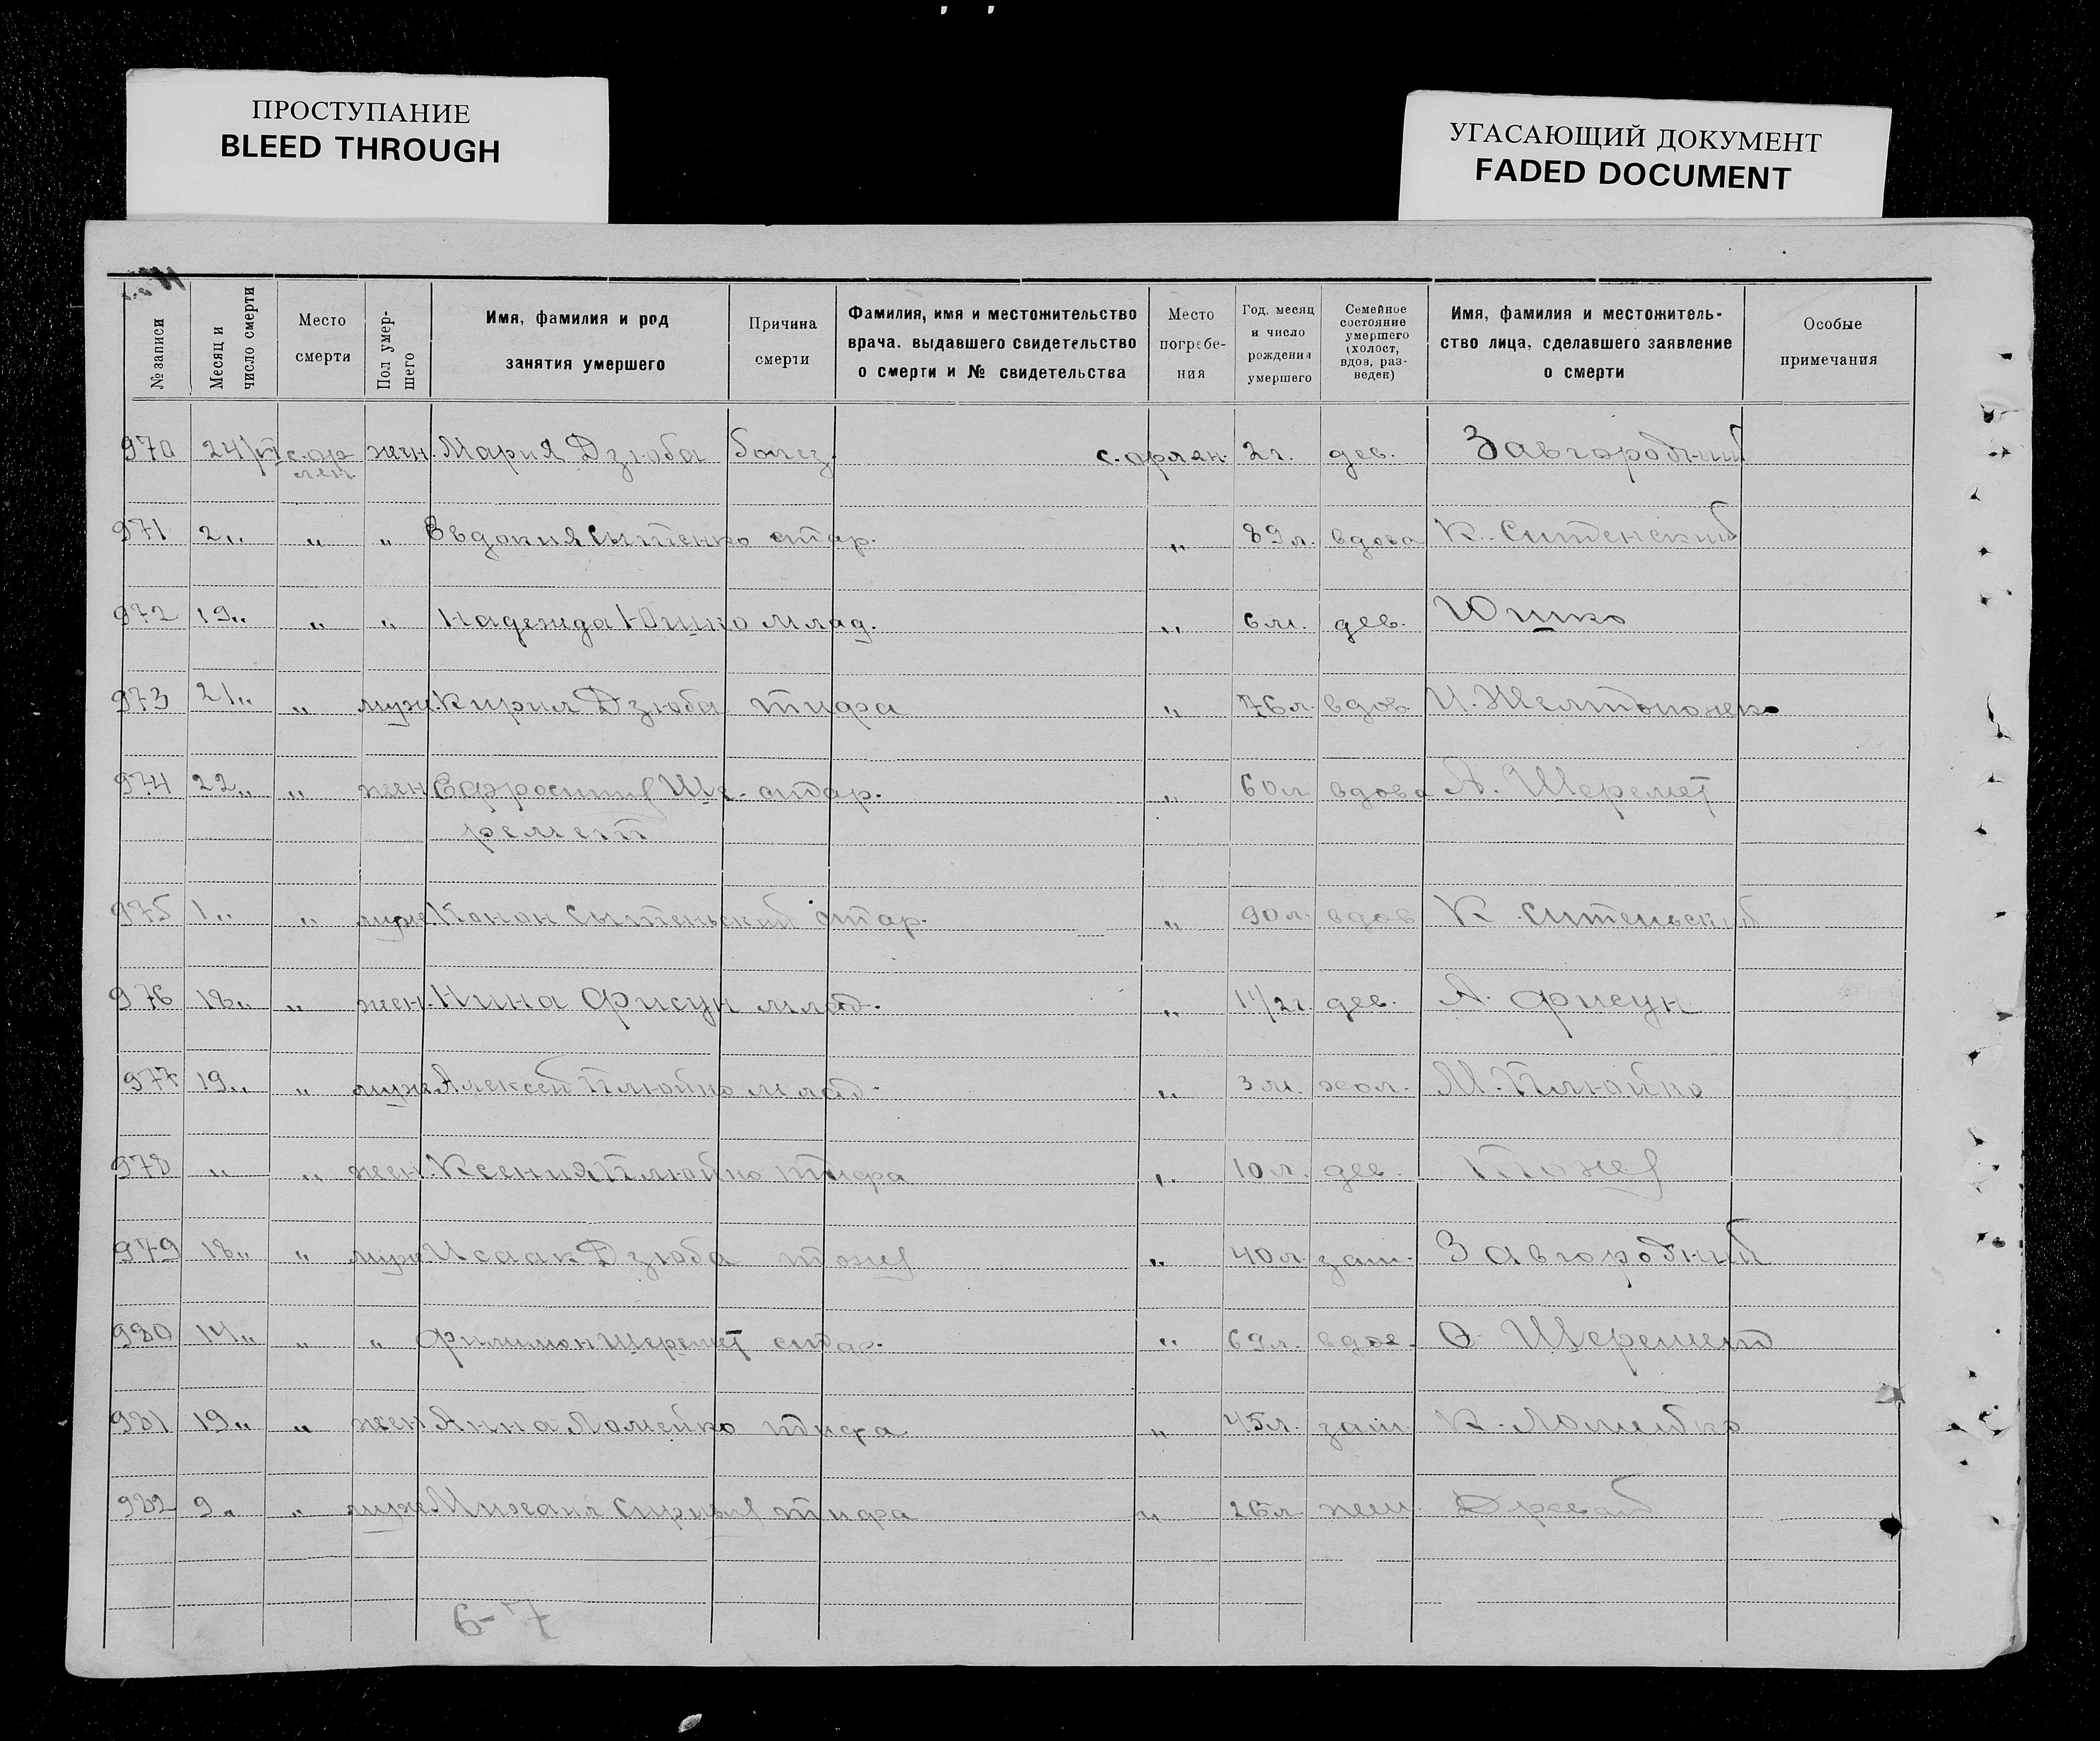 ПРОСТУПАНИЕ
BLEED THROUGH
УГАСАЮЩИЙ ДОКУМЕНТ
FADED DOCUMENT
№ записи
Месяц и
число смерти
Место
смерти
Пол умер-
шего
Имя, фамилия и род
занятия умершего
Причина
смерти
Фамилия, имя и местожительство
врача, выдавшего свидетельство
о смерти и № свидетельства
Место
погребе-
ния
Год, месяц
и число
рождения
умершего
Семейное
состояние
умершего
(холост,
вдов, раз-
веден)
Имя, фамилия и местожитель-
ство лица, сделавшего заявление
о смерти
Особые
примечания
970 24/ с. ор жен. Мария Дзюба болез. с. орлян. 2 г. дев. Завгородний
лян.
971 2 " " " Евдокия Сытенко стар. " 89 л. вдова К. Ситенский
972 19 " " " Надежда Юшко млад. " 6 м. дев. Юшко
973 21 " " муж. Кирил Дзюба тифа " 76 л. вдов. И.
974 22 " " жен Ефросиния Ше- стар. " 60 л вдова А. Шеремет
ремет
975 1 " " муж. Конон Сытеньский стар. " 90 л. вдов К Ситеньский
976 18 " " жен. Нина Фисун млад. " 1 1/2 г. дев. А. Фисун
977 19 " " муж. Алексей Плюйко млад. " 3 м. хол. М. Плюйко
978 " " жен. Ксения Плюйко тифа " 10 л. дев. Тоже
979 18 " " муж Исаак Дзюба тоже " 40 л зам. Завгородний
980 14 " " " Филимон Шеремет стар. " 69 л. вдов. Шеремет
981 19 " " жен Анна Ломейко тифа " 45 л. зам. К. Ломейко
982 9 " " муж. Михаил тифа " 26 л
6-7